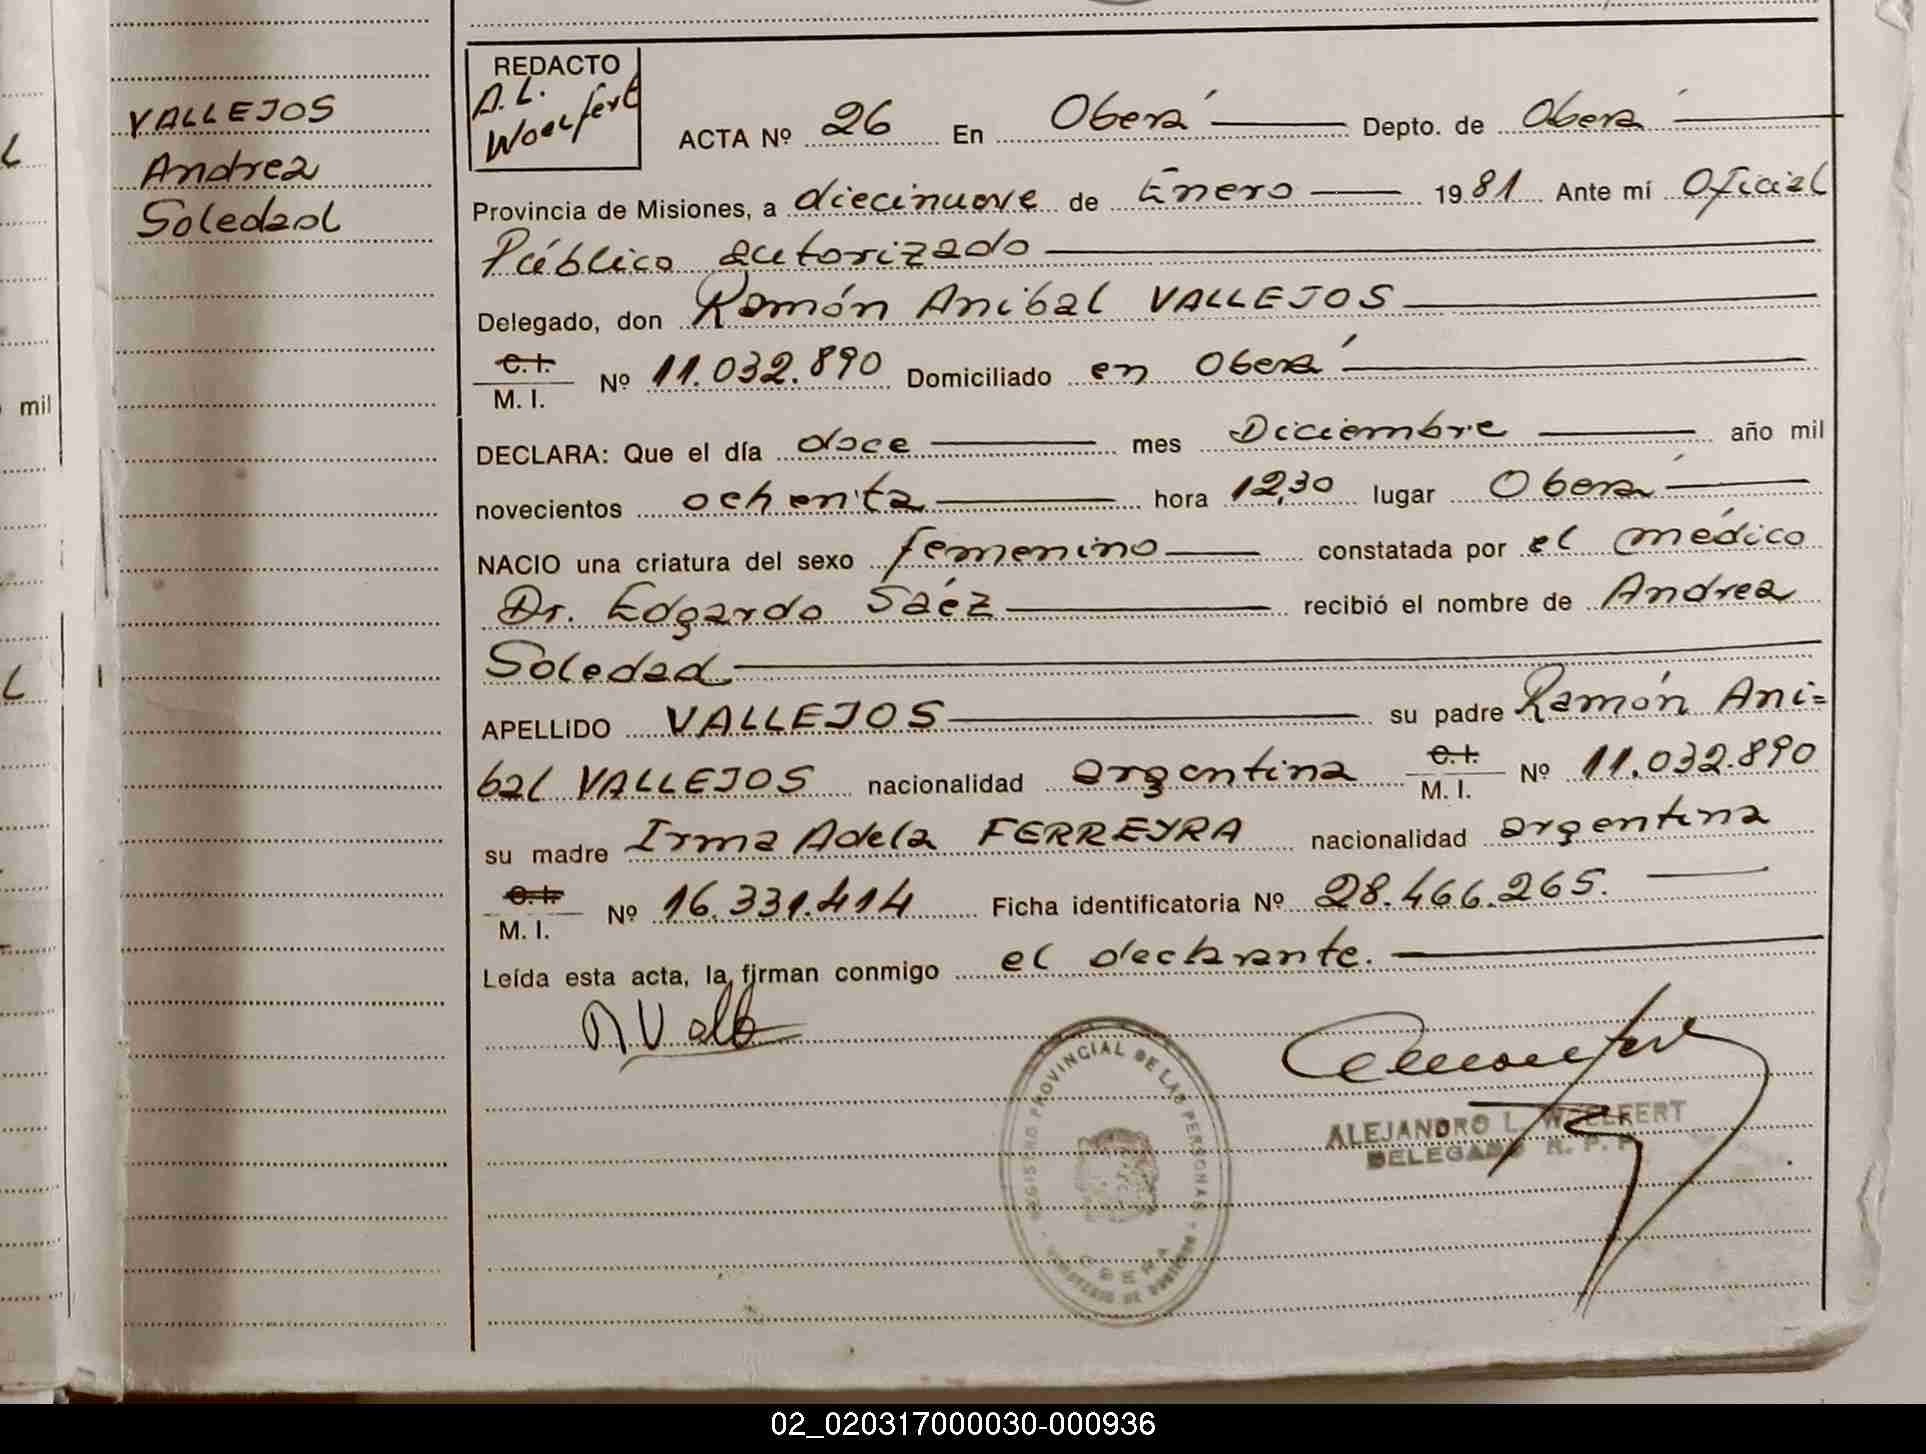 VALLEJOS
Andrea
Soledad
mil
REDACTO
A. L.
Woelfert
ACTA Nº 26 En Oberá Depto. de Oberá
Provincia de Misiones, a diecinueve de Enero 1981 Ante mí Oficial
Público autorizado
Delegado, don Ramón Anibal VALLEJOS
C. I.
M. I. Nº 11.032.890 Domiciliado en Oberá
DECLARA: Que el día doce mes Diciembre año mil
novecientos ochenta hora 12,30 lugar Oberá
NACIO una criatura del sexo femenino constatada por el médico
Dr. Edgardo Sáez recibió el nombre de Andrea
Soledad
APELLIDO VALLEJOS su padre Ramón Ani=
bal VALLEJOS nacionalidad argentina C. I. M. I. Nº 11.032.890
su madre Irma Adela FERREYRA nacionalidad argentina
C. I.
M. I. Nº 16.331.414 Ficha identificatoria Nº 28.466.265.
Leída esta acta, la firman conmigo el declarante.
REGISTRO PROVINCIAL DE LAS PERSONAS
OBERA
ALEJANDRO L. WOELFERT
DELEGADO R. P. P.
02_020317000030-000936